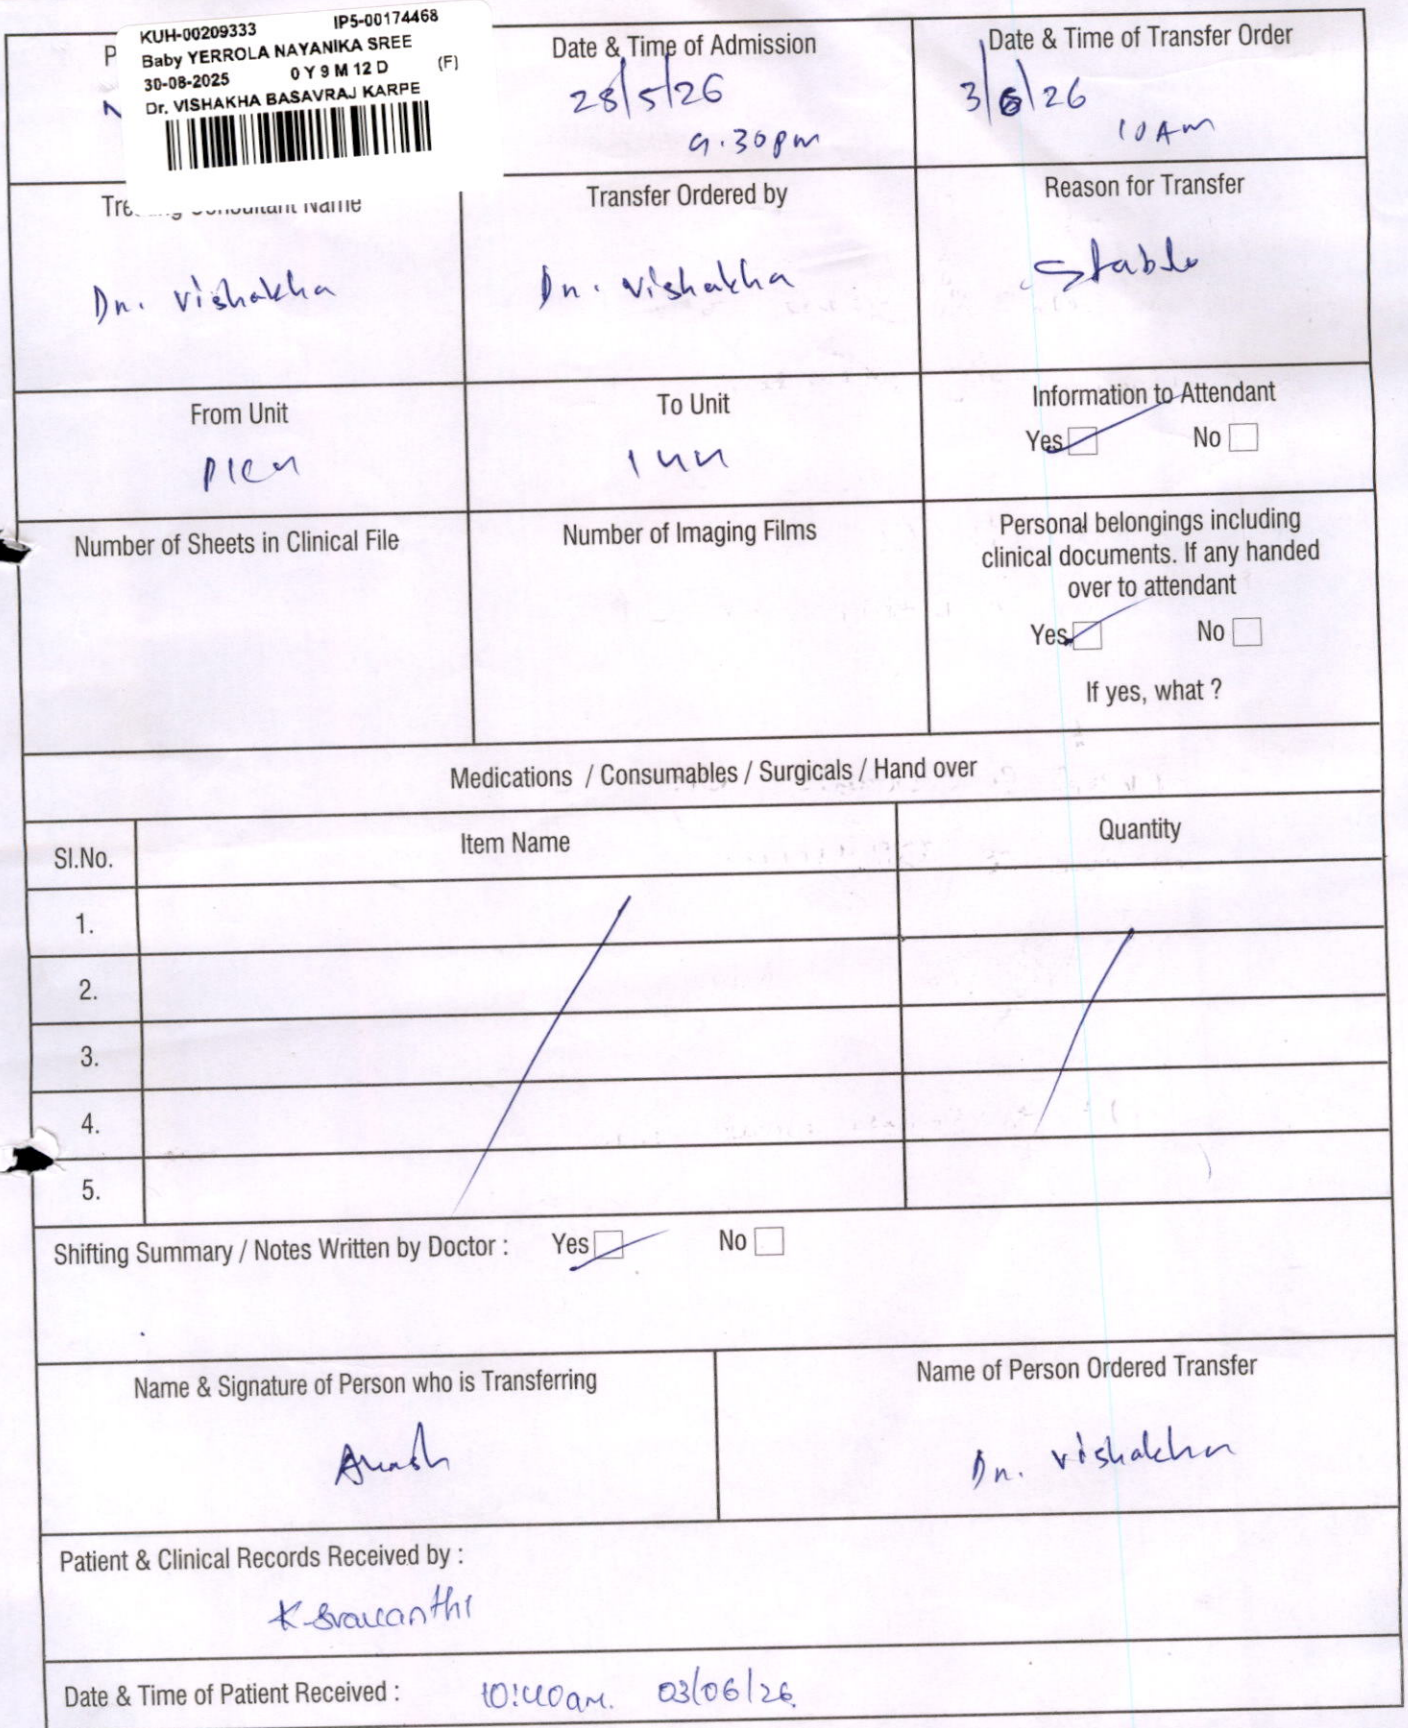 KUH-00209333 IP5-00174468
Baby YERROLA NAYANIKA SREE
30-08-2025 0 Y 9 M 12 D (F)
Dr. VISHAKHA BASAVRAJ KARPE
Date & Time of Admission
28/5/26
9.30pm
Date & Time of Transfer Order
3/6/26
10AM
Name
Dr. Vishakha
Transfer Ordered by
Dr. Vishakha
Reason for Transfer
Stable
From Unit
PICU
To Unit
Information to Attendant
Yes No
Number of Sheets in Clinical File
Number of Imaging Films
Personal belongings including
clinical documents. If any handed
over to attendant
Yes No
If yes, what ?
Medications / Consumables / Surgicals / Hand over
Sl.No. Item Name Quantity
1.
2.
3.
4.
5.
Shifting Summary / Notes Written by Doctor : Yes No
Name & Signature of Person who is Transferring
Name of Person Ordered Transfer
Dr. Vishakha
Patient & Clinical Records Received by :
Date & Time of Patient Received : 10:40am. 03/06/26